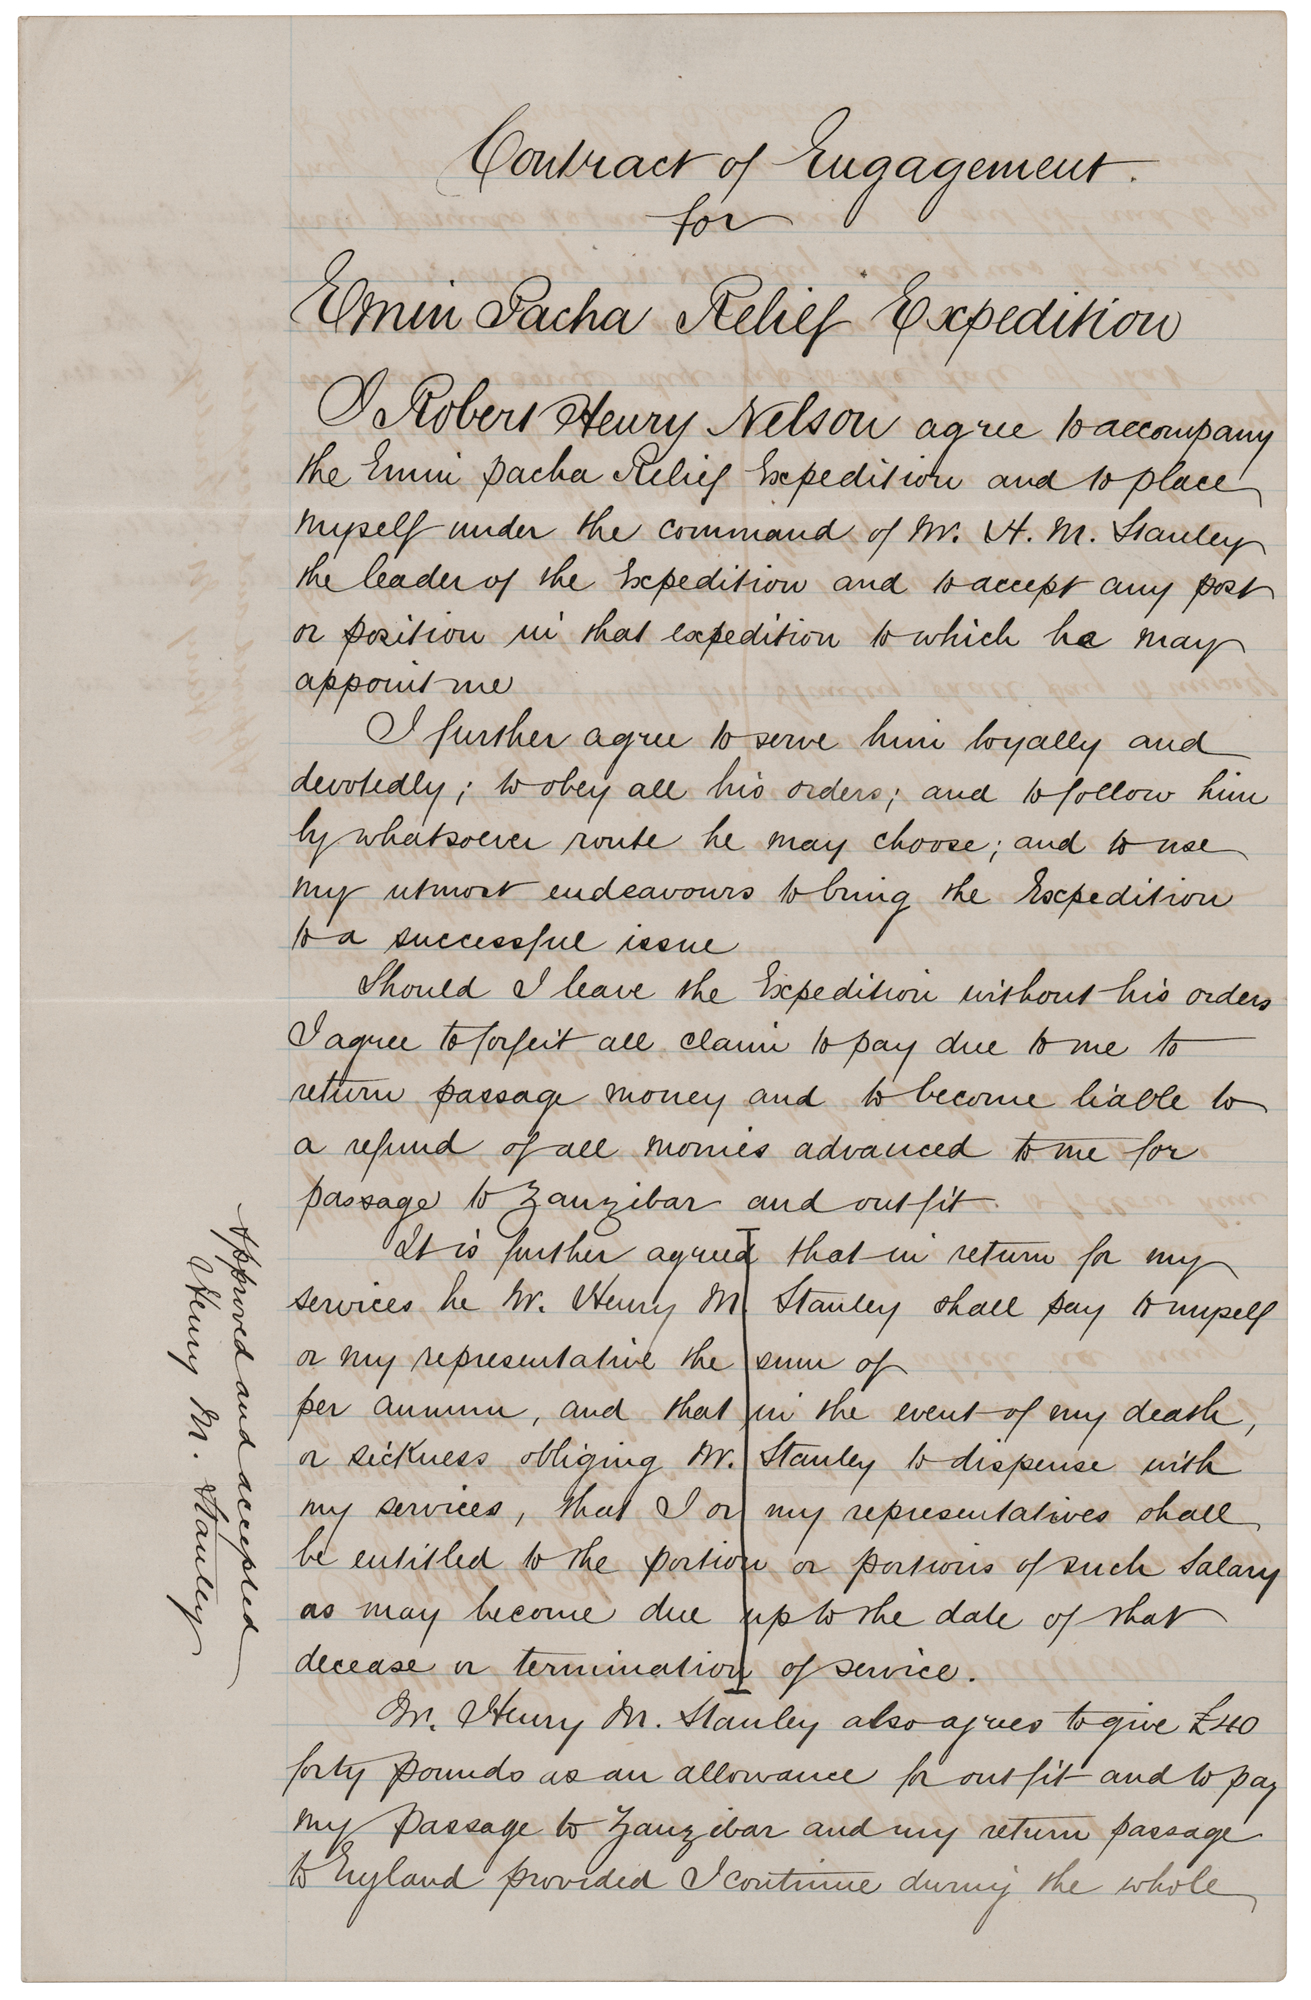 Contract of Engagement.
for
Emin Pacha Relief Expedition
I Robert Henry Nelson agree to accompany
the Emin pacha Relief Expedition and to place
myself under the command of Mr. H. M. Stanley
the leader of the Expedition and to accept any post
or position in that expedition to which he may
appoint me
I further agree to serve him loyally and
devotedly; to obey all his orders; and to follow him
by whatsoever route he may choose; and to use
my utmost endeavours to bring the Expedition
to a successful issue
Should I leave the Expedition without his orders
I agree to forfeit all claim to pay due to me to
return passage money and to become liable to
a refund of all monies advanced to me for
passage to Zanzibar and outfit.
It is further agreed that in return for my
services he Mr. Henry M. Stanley shall pay to myself
or my representative the sum of
per annum, and that in the event of my death,
or sickness obliging Mr. Stanley to dispense with
my services, that I or my representatives shall
be entitled to the portion or portions of such salary
as may become due up to the date of that
decease or termination of service.
Mr. Henry M. Stanley also agrees to give £40
forty pounds as an allowance for outfit and to pay
my passage to Zanzibar and my return passage
to England provided I continue during the whole
Approved and accepted
Henry M. Stanley